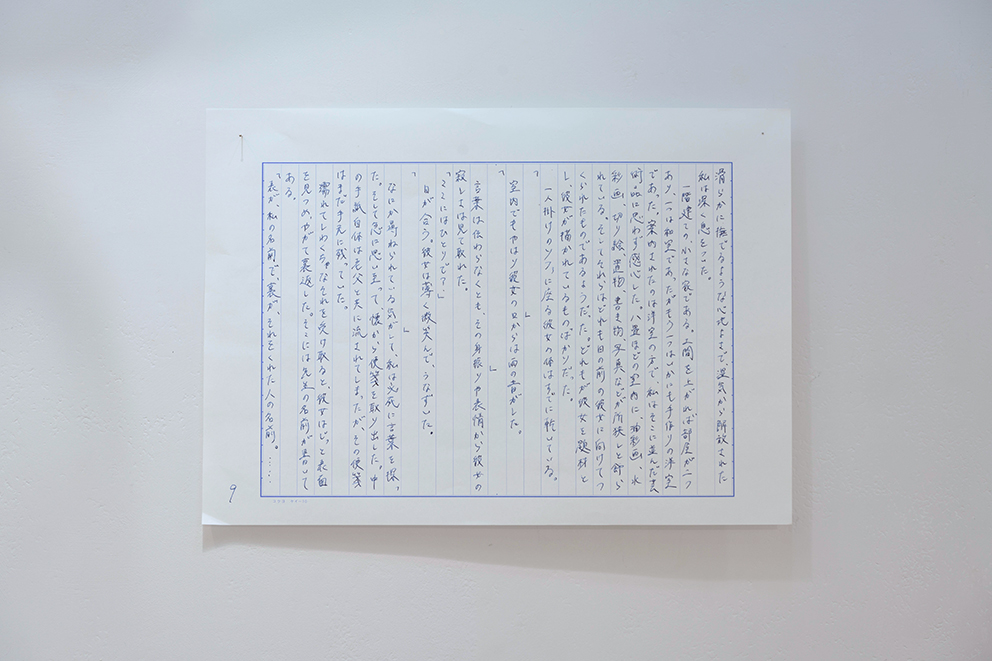 滑らかに撫でるような心地よさで、湿気から解放された
私は深く息をついた。
二階建ての小さな家である。土間を上がれば部屋が二つ
あり、一つは和室であったがもう一つはいかにも手作りの洋室
であった。案内されたのは洋室の方で、私はそこに並んだ芸
術品に思わず感心した。八畳ほどの室内に、油彩画、水
彩画、切り絵、置物、書き物、写真などが所狭しと飾ら
れている。そしてそれらはどれも目の前の彼女に向けてつ
くられたものであるようだった。どれもが彼女を題材と
し、彼女が描かれているものばかりだった。
一人掛けのソファに座る彼女の体はすでに乾いている。
「　　　　　　　　」
室内でもやはり彼女の口からは雨の音がした。
「　　　　　　　　　　　」
言葉は伝わらなくとも、その身振りや表情から彼女の
寂しさは見て取れた。
「ここにはひとりで？」
目が合う。彼女は薄く微笑んで、うなずいた。
「　　　　　　　　　」
なにか尋ねられている気がして、私は必死に言葉を探し
た。そして急に思い立って、懐から便箋を取り出した。中
の手紙自体は老父と共に流されてしまったが、その便箋
はまだ手元に残っていた。
濡れてしわくちゃなそれを受け取ると、彼女はじっと表面
を見つめ、やがて裏返した。そこには先生の名前が書いて
ある。
「表が、私の名前で、裏が、それをくれた人の名前。……
9